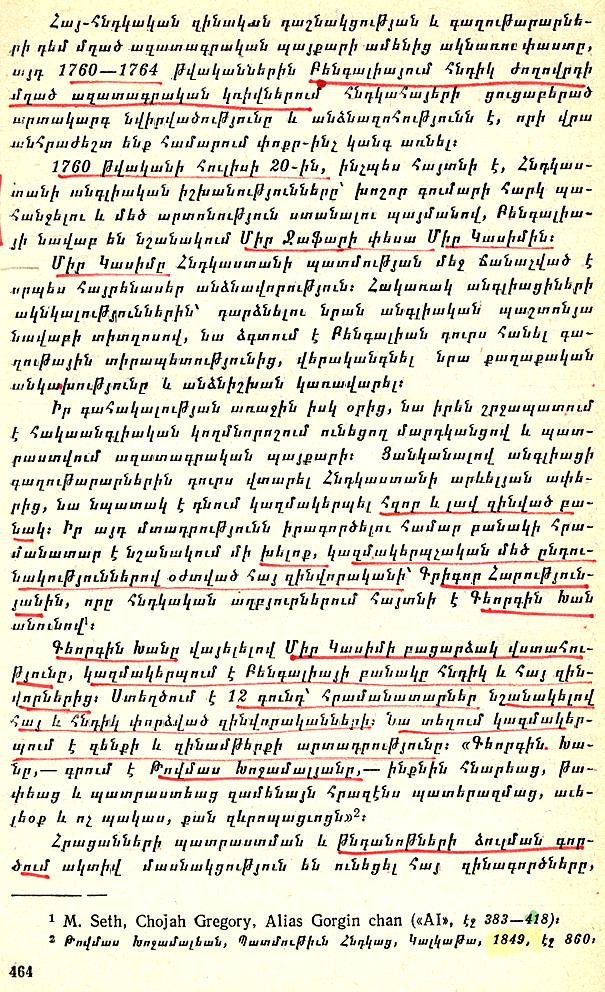 Հայ-հնդկական զինական դաշնակցության և գաղութարարնե-
րի դեմ մղած ազատագրական պայքարի ամենից ակնառու փաստը,
այդ 1760—1764 թվականներին Բենգալիայում հնդիկ ժողովրդի
մղած ազատագրական կռիվներում հնդկահայերի ցուցաբերած
արտակարգ նվիրվածությունը և անձնազոհությունն է, որի վրա
անհրաժեշտ ենք համարում փոքր-ինչ կանգ առնել։
1760 թվականի հուլիսի 20-ին, ինչպես հայտնի է, Հնդկաս-
տանի անգլիական իշխանությունները՝ խոշոր գումարի հարկ պա-
հանջելու և մեծ արտոնություն ստանալու պայմանով, Բենգալիա-
յի նավաբ են նշանակում Միր Ջաֆարի փեսա Միր Կասիմին։
Միր Կասիմը Հնդկաստանի պատմության մեջ ճանաչված է
որպես հայրենասեր անձնավորություն։ Հակառակ անգլիացիների
ակնկալությունների՝ դարձնելու նրան անգլիական պաշտոնյա
նավաբի տիտղոսով, նա ձգտում է Բենգալիան դուրս հանել գա-
ղութային տիրապետությունից, վերականգնել նրա քաղաքական
անկախությունը և անձնիշխան կառավարել։
Իր գահակալության առաջին իսկ օրից, նա իրեն շրջապատում
է հակաանգլիական կողմնորոշում ունեցող մարդկանցով և պատ-
րաստվում ազատագրական պայքարի։ Ցանկանալով անգլիացի
գաղութարարներին դուրս վտարել Հնդկաստանի արևելյան ափե-
րից, նա նպատակ է դնում կազմակերպել հզոր և լավ զինված բա-
նակ։ Իր այդ մտադրությունն իրագործելու համար բանակի հրա-
մանատար է նշանակում մի խելոք, կազմակերպչական մեծ ընդու-
նակություններով օժտված հայ զինվորականի՝ Գրիգոր Հարություն-
յանին, որը հնդկական աղբյուրներում հայտնի է Գեորգին Խան
անունով¹։
Գեորգին Խանը վայելելով Միր Կասիմի բացարձակ վստահու-
թյունը, կազմակերպում է Բենգալիայի բանակը հնդիկ և հայ զին-
վորներից։ Ստեղծում է 12 գունդ՝ հրամանատարներ նշանակելով
հայ և հնդիկ փորձված զինվորականների։ Նա տեղում կազմակեր-
պում է զենքի և զինամթերքի արտադրությունը։ «Գեորգին Խա-
նը,— գրում է Թովմաս Խոջամալյանը,— ինքնին հնարեաց, թա-
փեաց և պատրաստեաց զամենայն հրազէնս պատերազմաց, աւե-
լեօք և ոչ պակաս, քան զևրոպացւոցն»²։
Հրացանների պատրաստման և թնդանոթների ձուլման գոր-
ծում ակտիվ մասնակցություն են ունեցել հայ զինագործները,
¹ M. Seth, Chojah Gregory, Alias Gorgin chan («AI», էջ 383—418)։
² Թովմաս Խոջամալեան, Պատմութիւն Հնդկաց, Կալկաթա, 1849, էջ 860։
464